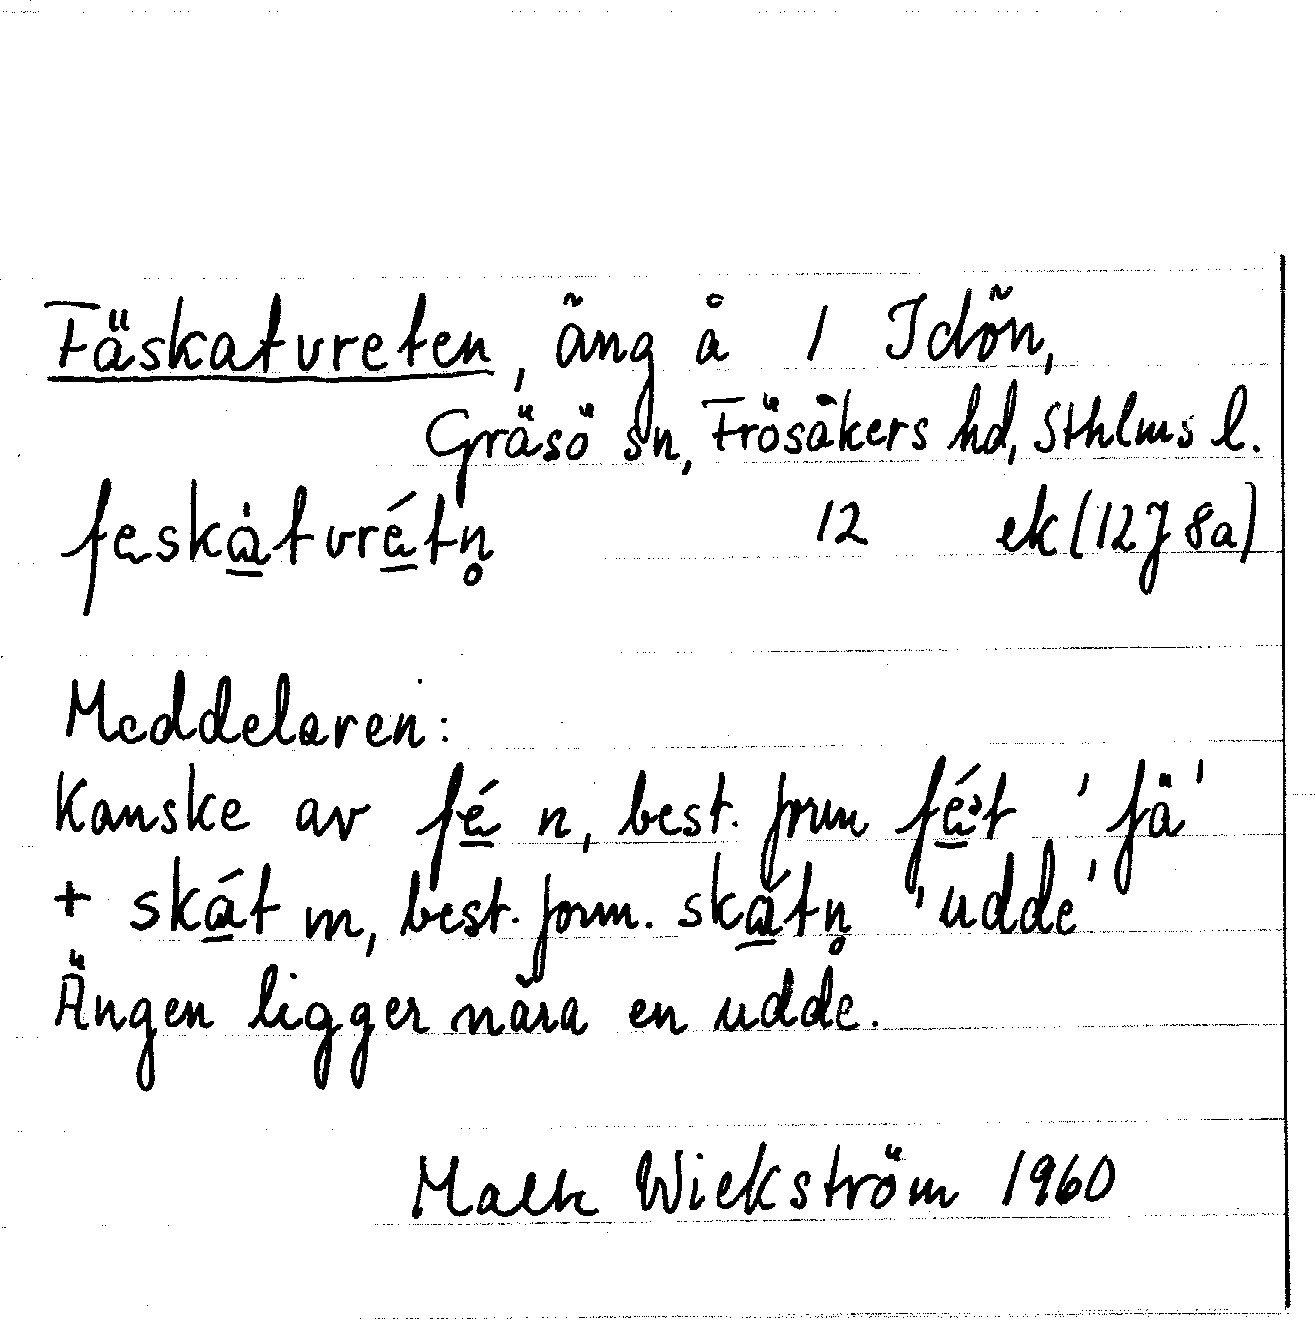 Fäskatvreten, äng å 1 Idön,
Gräsö sn, Frösåkers hd, Sthlms l.
feskàtvrétn̥ 12 ek (12J 8a)
Meddelaren:
Kanske av fé n, best. form fét 'fä'
+ skát m, best. form. skátn̥ 'udde'
Ängen ligger nära en udde.
Wickström 1960